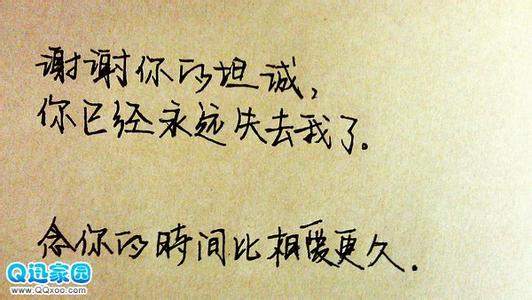 谢谢你的坦诚，
你已经永远失去我了.
念你的時间比相愛更久.
Q迅家园
www.QQxoo.com